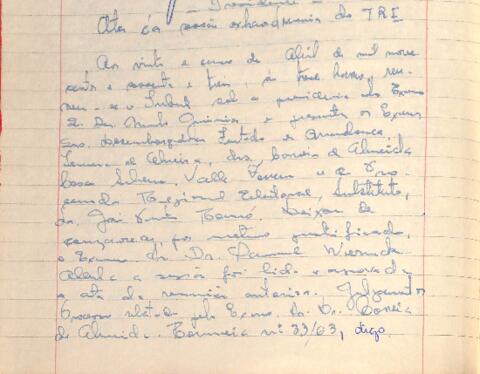 Presidente
Ata da sessão extraordinária do TRE
Aos vinte e cinco de Abril de mil nove
centos e sessenta e três, às treze horas, reu
niu-se o Tribunal sob a presidência do Exmo
Sr. Des. e presentes os Exmos
Srs. Desembargadores Furtado de Mendonça,
Ferreira de Oliveira, drs. Correia de Almeida
Valle Ferreira e o Pro
curador Regional Eleitoral, Substituto,
dr. José Deixou de
comparecer, por motivo justificado,
o Exmo. Sr. Dr.
Aberta a sessão foi lida e aprovada
a ata da reunião anterior. Julgamentos
Processo relatado pelo Exmo. Sr. Dr. Correia
de Almeida. nº 33/63, digo